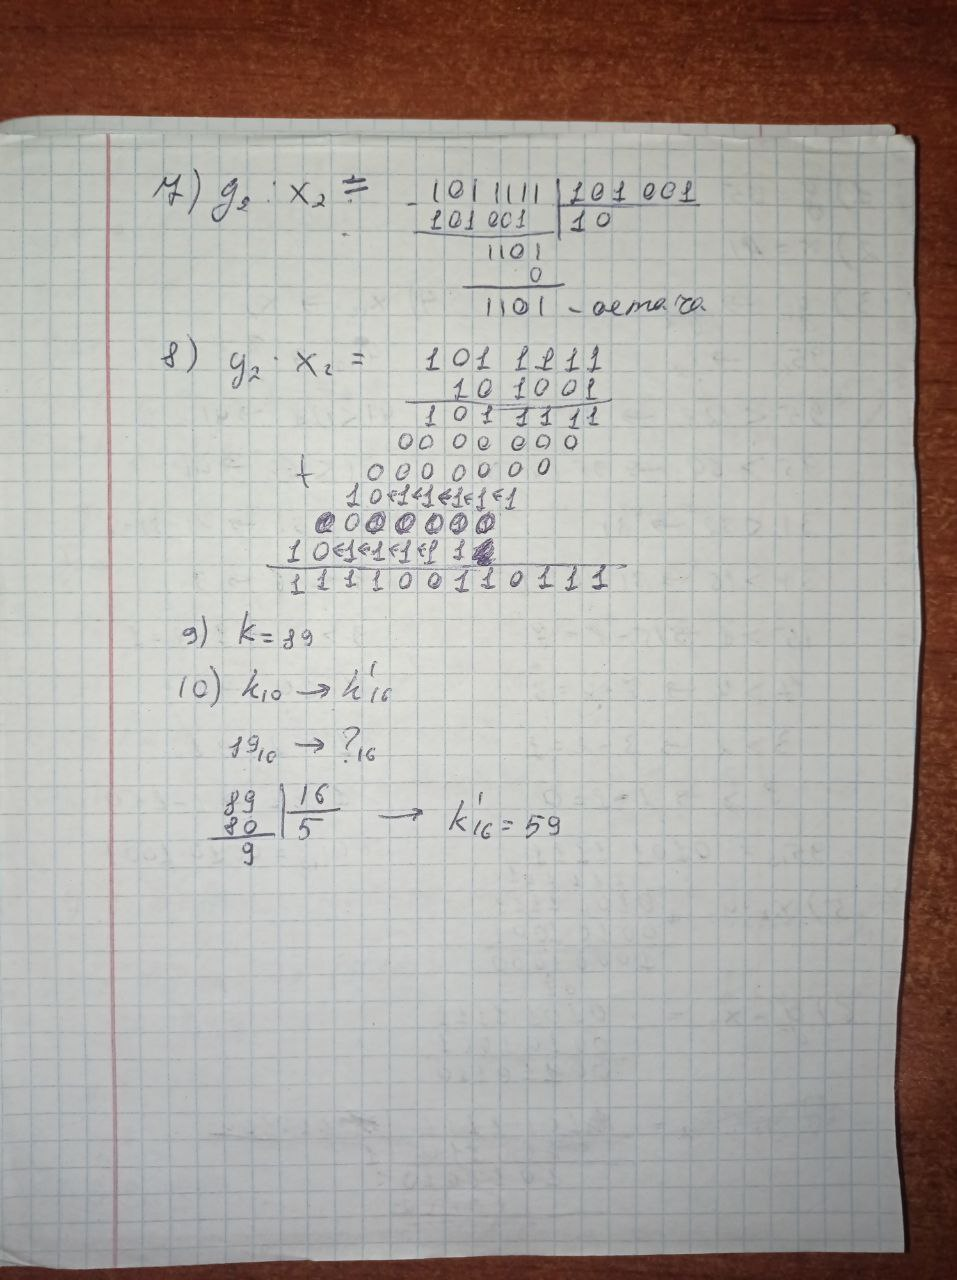 7) y₂ : x₂ = - 1011111 | 101001
101001 | 10
1101
0
1101 - остача
8) y₂ · x₂ = 101 1111
10 1001
101 1111
0000000
+ 0000000
10←1←1←1←1←1
0000000
10←1←1←1 1
1111001 10111
9) k = 89
10) k₁₀ → k'₁₆
89₁₀ → ?₁₆
89 | 16
80 | 5 → k'₁₆ = 59
9